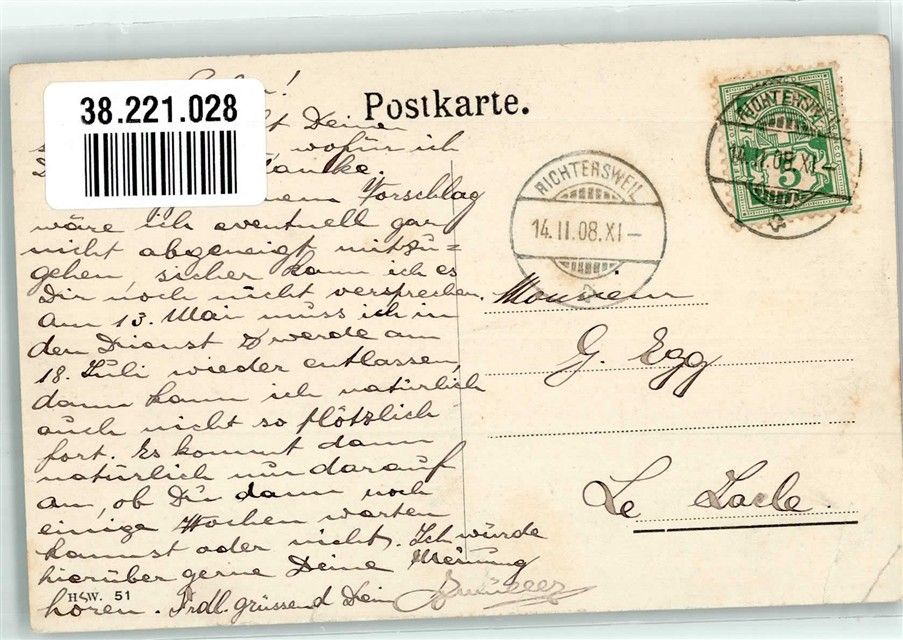 38.221.028
Postkarte.
Deinen
wofür ich
danke.
Vorschlag
wäre ich eventuell gar
nicht abgeneigt mitzu=
gehen, sicher kann ich es
Dir noch nicht versprechen.
Am 13. Mai muss ich in
den Dienst & werde am
18. Juli wieder entlassen,
dann kann ich natürlich
auch nicht so plötzlich
fort. Es kommt dann
natürlich nur darauf
an, ob Du dann noch
einige Wochen warten
kannst oder nicht. Ich würde
hierüber gerne Deine Meinung
hören. Frdl. grüssend Dein
H.S.W. 51
RICHTERSWEIL
14.II.08.XI—
RICHTERSWEIL
14.II.08.XI—
5
Monsieur
G. Egg
Le Locle.